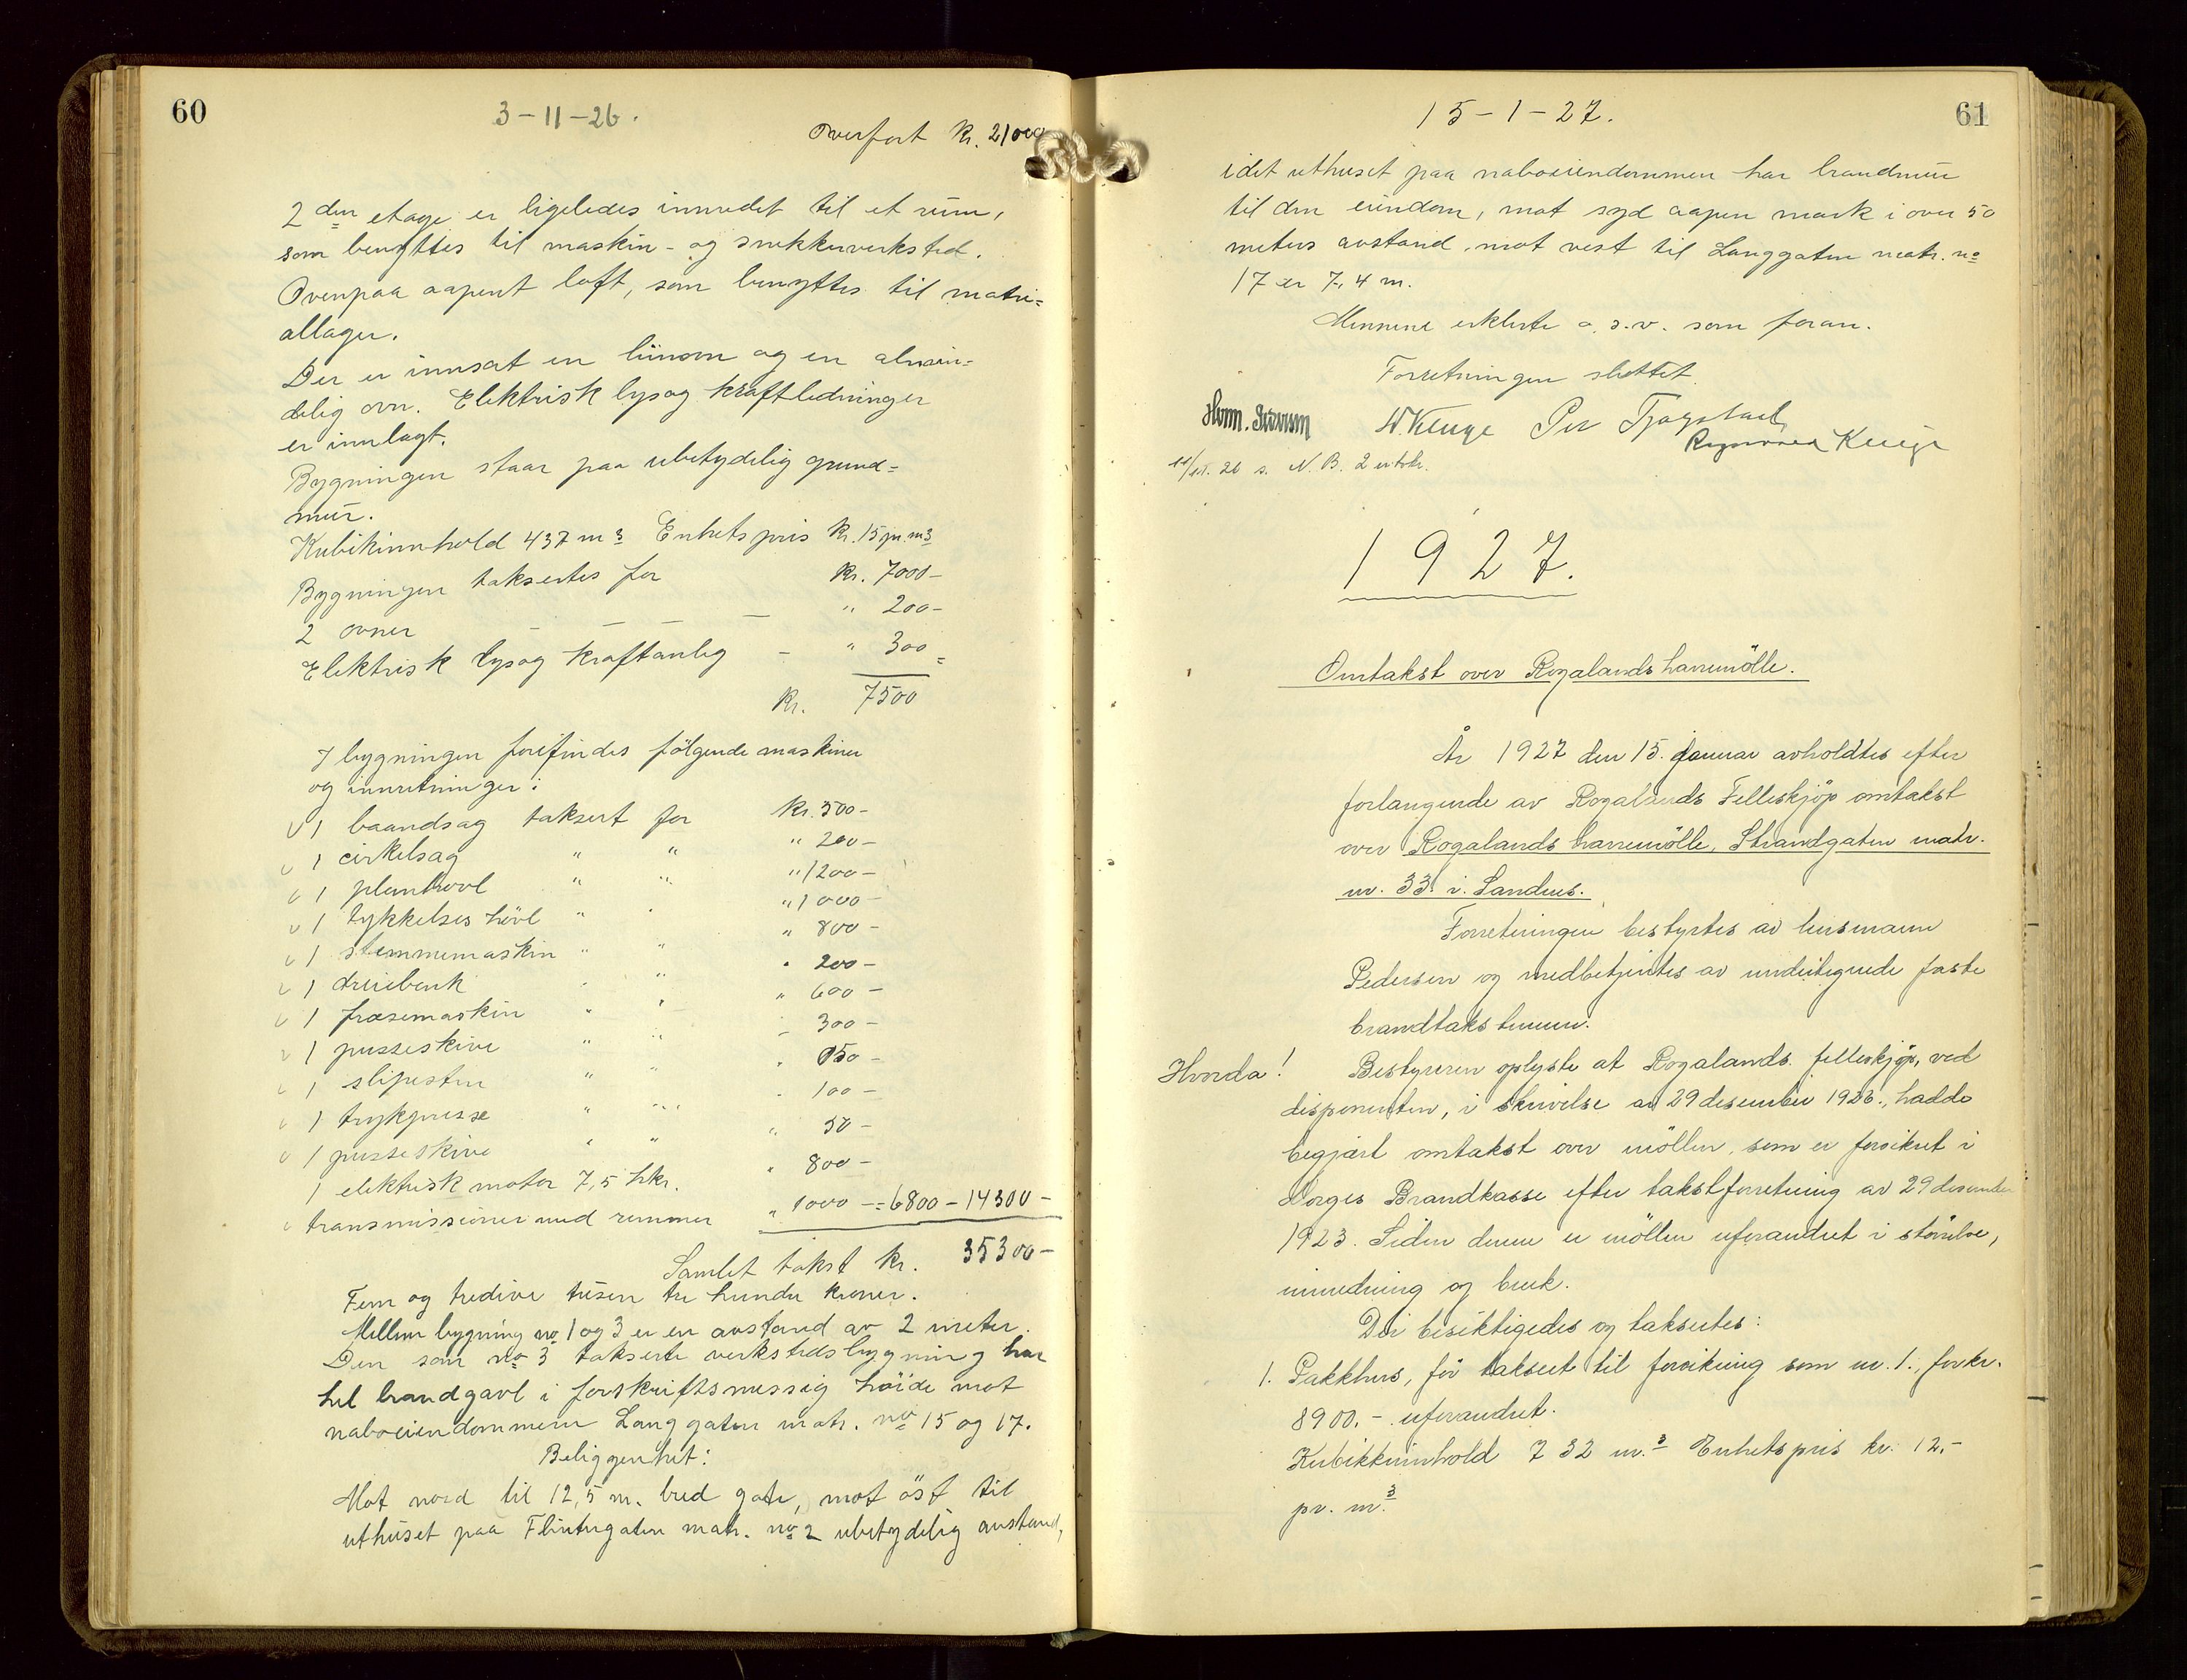 60
3-11-26.
Overført kr. 21000
2den etage er ligeledes innredet til et rum,
som benyttes til maskin- og snekkerverksted.
Ovenpaa aapent loft, som benyttes til matri=
allager.
Der er innsat en liinovn og en almin=
delig ovn. Elektrisk lys og kraftledninger
er innlagt.
Bygningen staar paa ubetydelig grund=
mur.
Kubikinnhold 437 m3 Enhetspris kr. 15 pr. m3
Bygningen taksertes for kr. 7000-
2 ovner — — — " 200-
Elektrisk lys og kraftanleg - " 300=
kr. 7500
I bygningen forefindes følgende maskiner
og innretninger:
1 baandsag taksert for kr. 500-
1 cirkelsag " " " 200-
1 planhøvl " " " 1200-
1 tykkelseshøvl " " " 1000-
1 stemmemaskin " " " 800-
1 dreiebenk " " " 200-
1 fræsemaskin " " " 600-
1 pusseskive " " " 300-
1 slipesten " " " 050-
1 trykpresse " " " 100-
1 pusseskive " " " 50-
1 elektrisk motor 7,5 hkr. " 800-
transmissioner med remmer " 1000 -=6800-14300-
Samlet takst kr. 35300-
Fem og tredive tusen tre hundre kroner.
Mellem bygning no 1 og 3 er en avstand av 2 meter.
Den som no 3 takserte verkstedsbygning har
hel brandgavl i forskriftsmessig høide mot
naboeiendommene Langgaten matr. no 15 og 17.
Beliggenhet:
Mot nord til 12,5 m. bred gate, mot øst til
uthuset paa Flintergaten matr. no 2 ubetydelig avstand,
15-1-27.
61
idet uthuset paa naboeiendommen har brandmur
til den eiendom, mot syd aapen mark i over 50
meters avstand, mot vest til Langgaten matr. no
17 er 7,4 m.
Mennene erklerte o.s.v. som foran.
Forretningen sluttet.
W. Kluge Per Tjaagstad
Kluge
26 s. N.B. 2 
1927.
Omtakst over Rogalands havremölle.
År 1927 den 15. januar avholdtes efter
forlangende av Rogalands Felleskjöp omtakst
over Rogalands havremölle, Strandgaten matr.
nr. 33 i Sandnes.
Forretningen bestyrtes av lensmann
Pedersen og medbetjentes av undertegnede faste
brandtakstmenn.
Hvorda! Bestyreren oplyste at Rogalands felleskjöp, ved
disponenten, i skrivelse av 29 desember 1926., hadde
begjært omtakst over möllen, som er forsikret i
Norges Brandkasse efter takstforretning av 29 desember
1923. Siden denne er möllen uforandret i störrelse,
innredning og bruk.
Der besiktigedes og taksertes:
1. Pakkhus, för taksert til forsikring som nr. 1., for kr.
8900.- uforandret.
Kubikkinnhold 732 m.3 Enhetspris kr. 12.-
pr. m.3